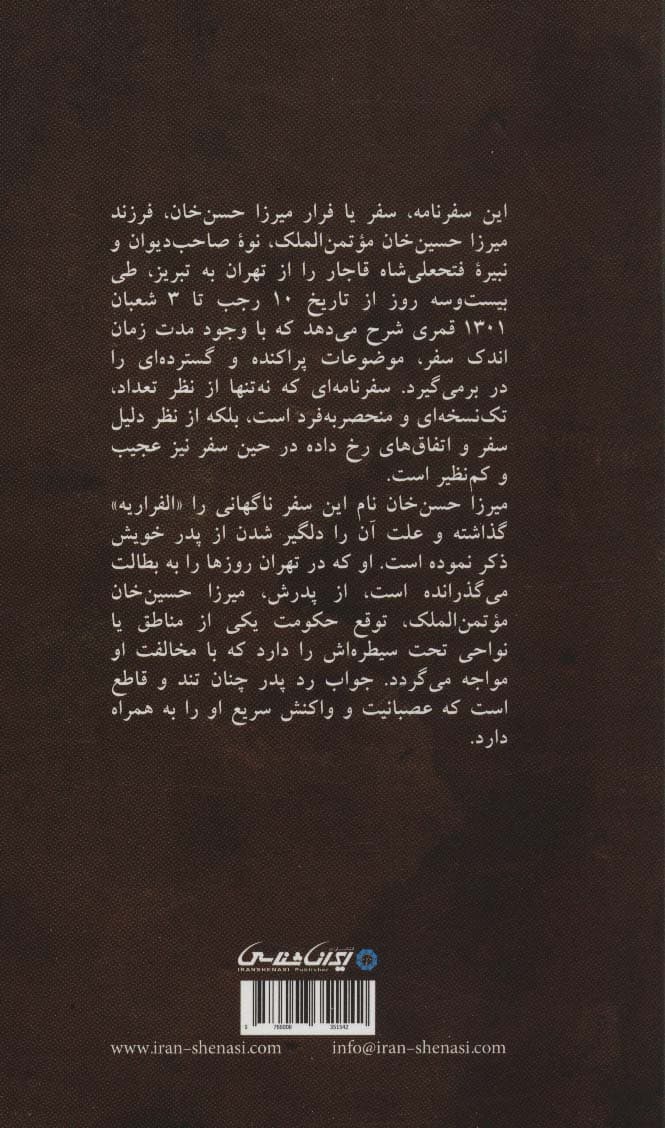 این سفرنامه، سفر یا فرار میرزا حسن‌خان، فرزند
میرزا حسین‌خان مؤتمن‌الملک، نوهٔ صاحب‌دیوان و
نبیرهٔ فتحعلی‌شاه قاجار را از تهران به تبریز، طی
بیست‌وسه روز از تاریخ ۱۰ رجب تا ۳ شعبان
۱۳۰۱ قمری شرح می‌دهد که با وجود مدت زمان
اندک سفر، موضوعات پراکنده و گسترده‌ای را
در برمی‌گیرد. سفرنامه‌ای که نه‌تنها از نظر تعداد،
تک‌نسخه‌ای و منحصربه‌فرد است، بلکه از نظر دلیل
سفر و اتفاق‌های رخ داده در حین سفر نیز عجیب
و کم‌نظیر است.
میرزا حسن‌خان نام این سفر ناگهانی را «الفراریه»
گذاشته و علت آن را دلگیر شدن از پدر خویش
ذکر نموده است. او که در تهران روزها را به بطالت
می‌گذرانده است، از پدرش، میرزا حسین‌خان
مؤتمن‌الملک، توقع حکومت یکی از مناطق یا
نواحی تحت سیطره‌اش را دارد که با مخالفت او
مواجه می‌گردد. جواب رد پدر چنان تند و قاطع
است که عصبانیت و واکنش سریع او را به همراه
دارد.
ایرانشناسی
IRANSHENASI Publisher
351542
www.iran-shenasi.com info@iran-shenasi.com